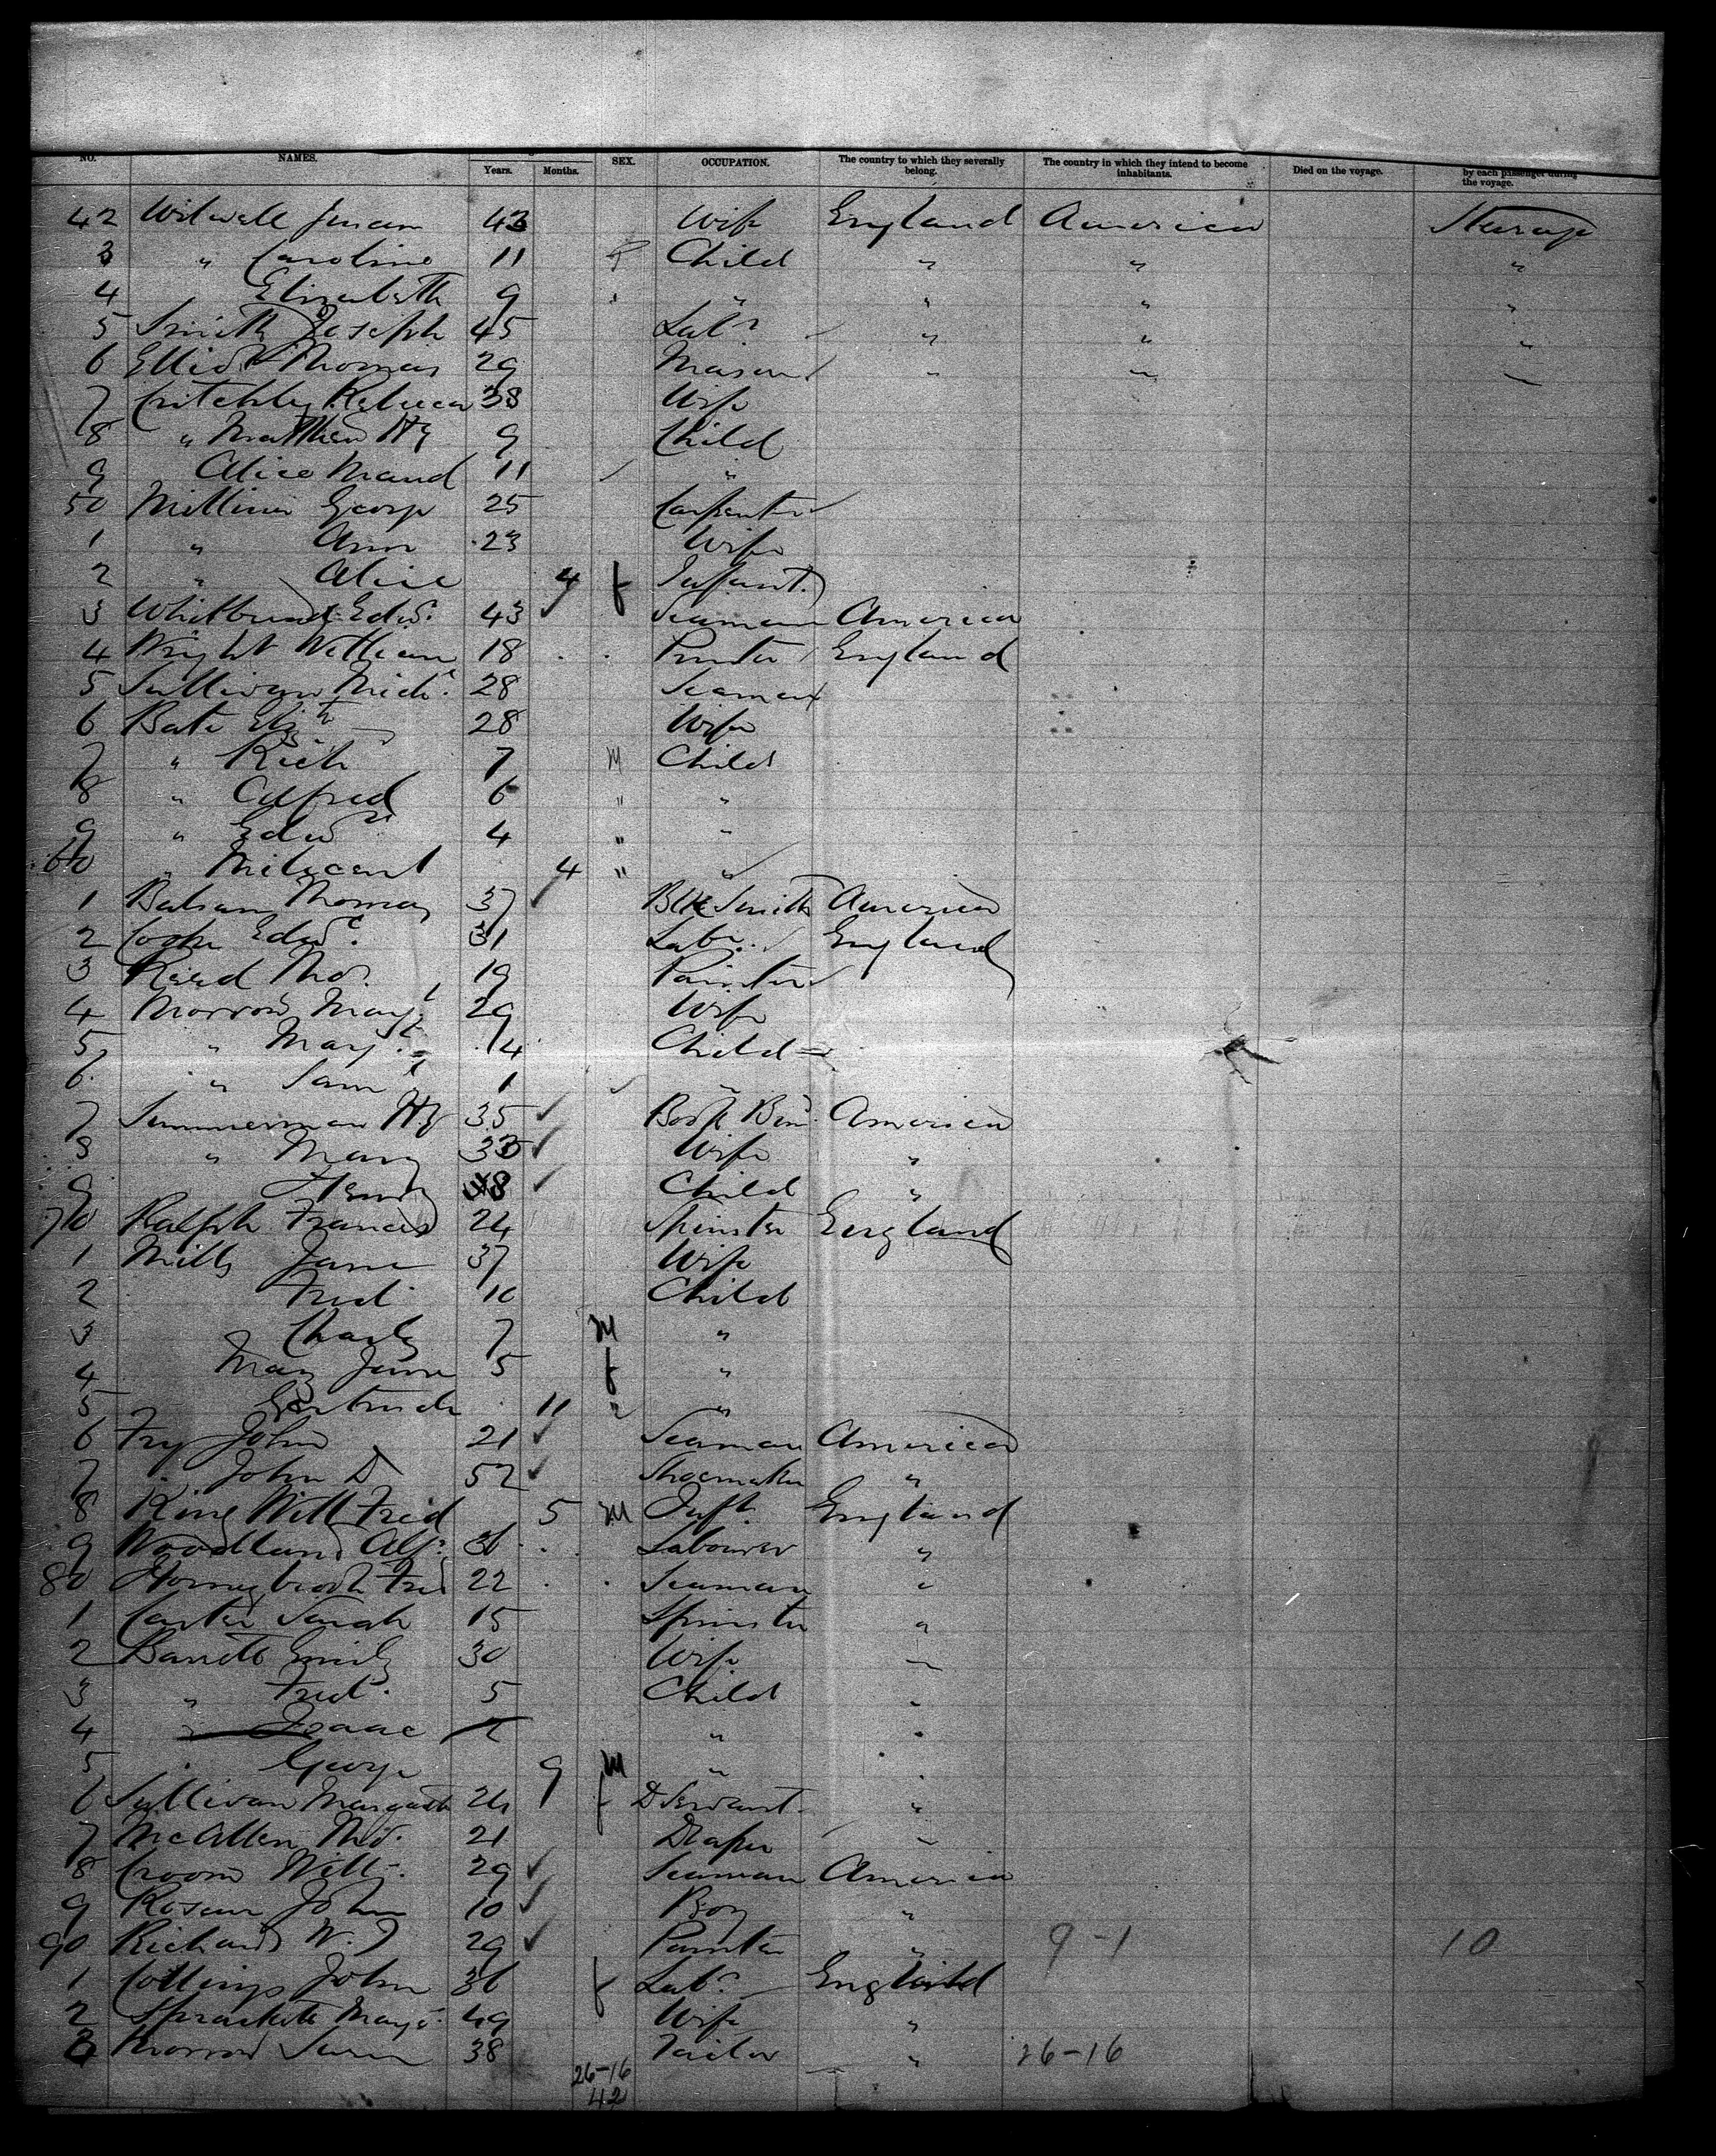 NO. NAMES. Years. Months. SEX. OCCUPATION. The country to which they severally belong. The country in which they intend to become inhabitants. Died on the voyage. by each passenger during the voyage.
42 43 Wife England America Steerage
3 " Caroline 11 f Child " " "
4 Elizabeth 9 " " " "
5 Smith Joseph 45 Labr " " "
6 Elliot Thomas 29 Mason " "
7 Critchley Rebecca 38 Wife
8 " Matthew Hy 9 Child
9 Alice Maud 11 "
50 George 25 Carpenter
1 " Ann 23 Wife
2 " Alice 4 f Infant
3 Edwd 43 Seaman America
4 Wright William 18 England
5 Sullivan Michl 28 Seaman
6 Bate Elizth 28 Wife
7 " Rich 7 M Child
8 " Alfred 6 " "
9 " Edwd 4 " "
60 " Milycent 4 " "
1 Thomas 37 Blk Smith America
2 Cook Edwd 31 Labr England
3 Reed Thos 19 Painter
4 Morrow Margt 29 Wife
5 " Margt 4 Child
6 " Saml 1 "
7 Summerman Hy 35 Book Bin America
8 " Mary 35 Wife "
9 Henry Child "
70 Ralph Frances 24 Spinster England
1 Mills Jane 37 Wife
2 Fred 10 Child
3 Charles 7 M "
4 Mary Jane 5 f "
5 Gertrude 11 " "
6 Fry John 21 Seaman America
7 " John D 52 Shoemaker "
8 King Will Fred 5 M Inft England
9 Woodland Alf 36 Labourer "
80 Hornybrook Fred 22 Seaman "
1 Carter Sarah 15 Spinster "
2 Barrett Emily 30 Wife "
3 " Fred 5 Child "
4 " Isaac " "
5 " George 9 M " "
6 Sullivan Margaret 24 f D Servant "
7 McAllen 21 Draper "
8 Croom Will 29 Seaman America
9 John 10 Boy "
90 Richards W. J 29 Painter " 9-1 10
1 Collings John 36 f Labr England
2 49 Wife "
3 Morrow 38 Tailor " 26-16
26-16
42